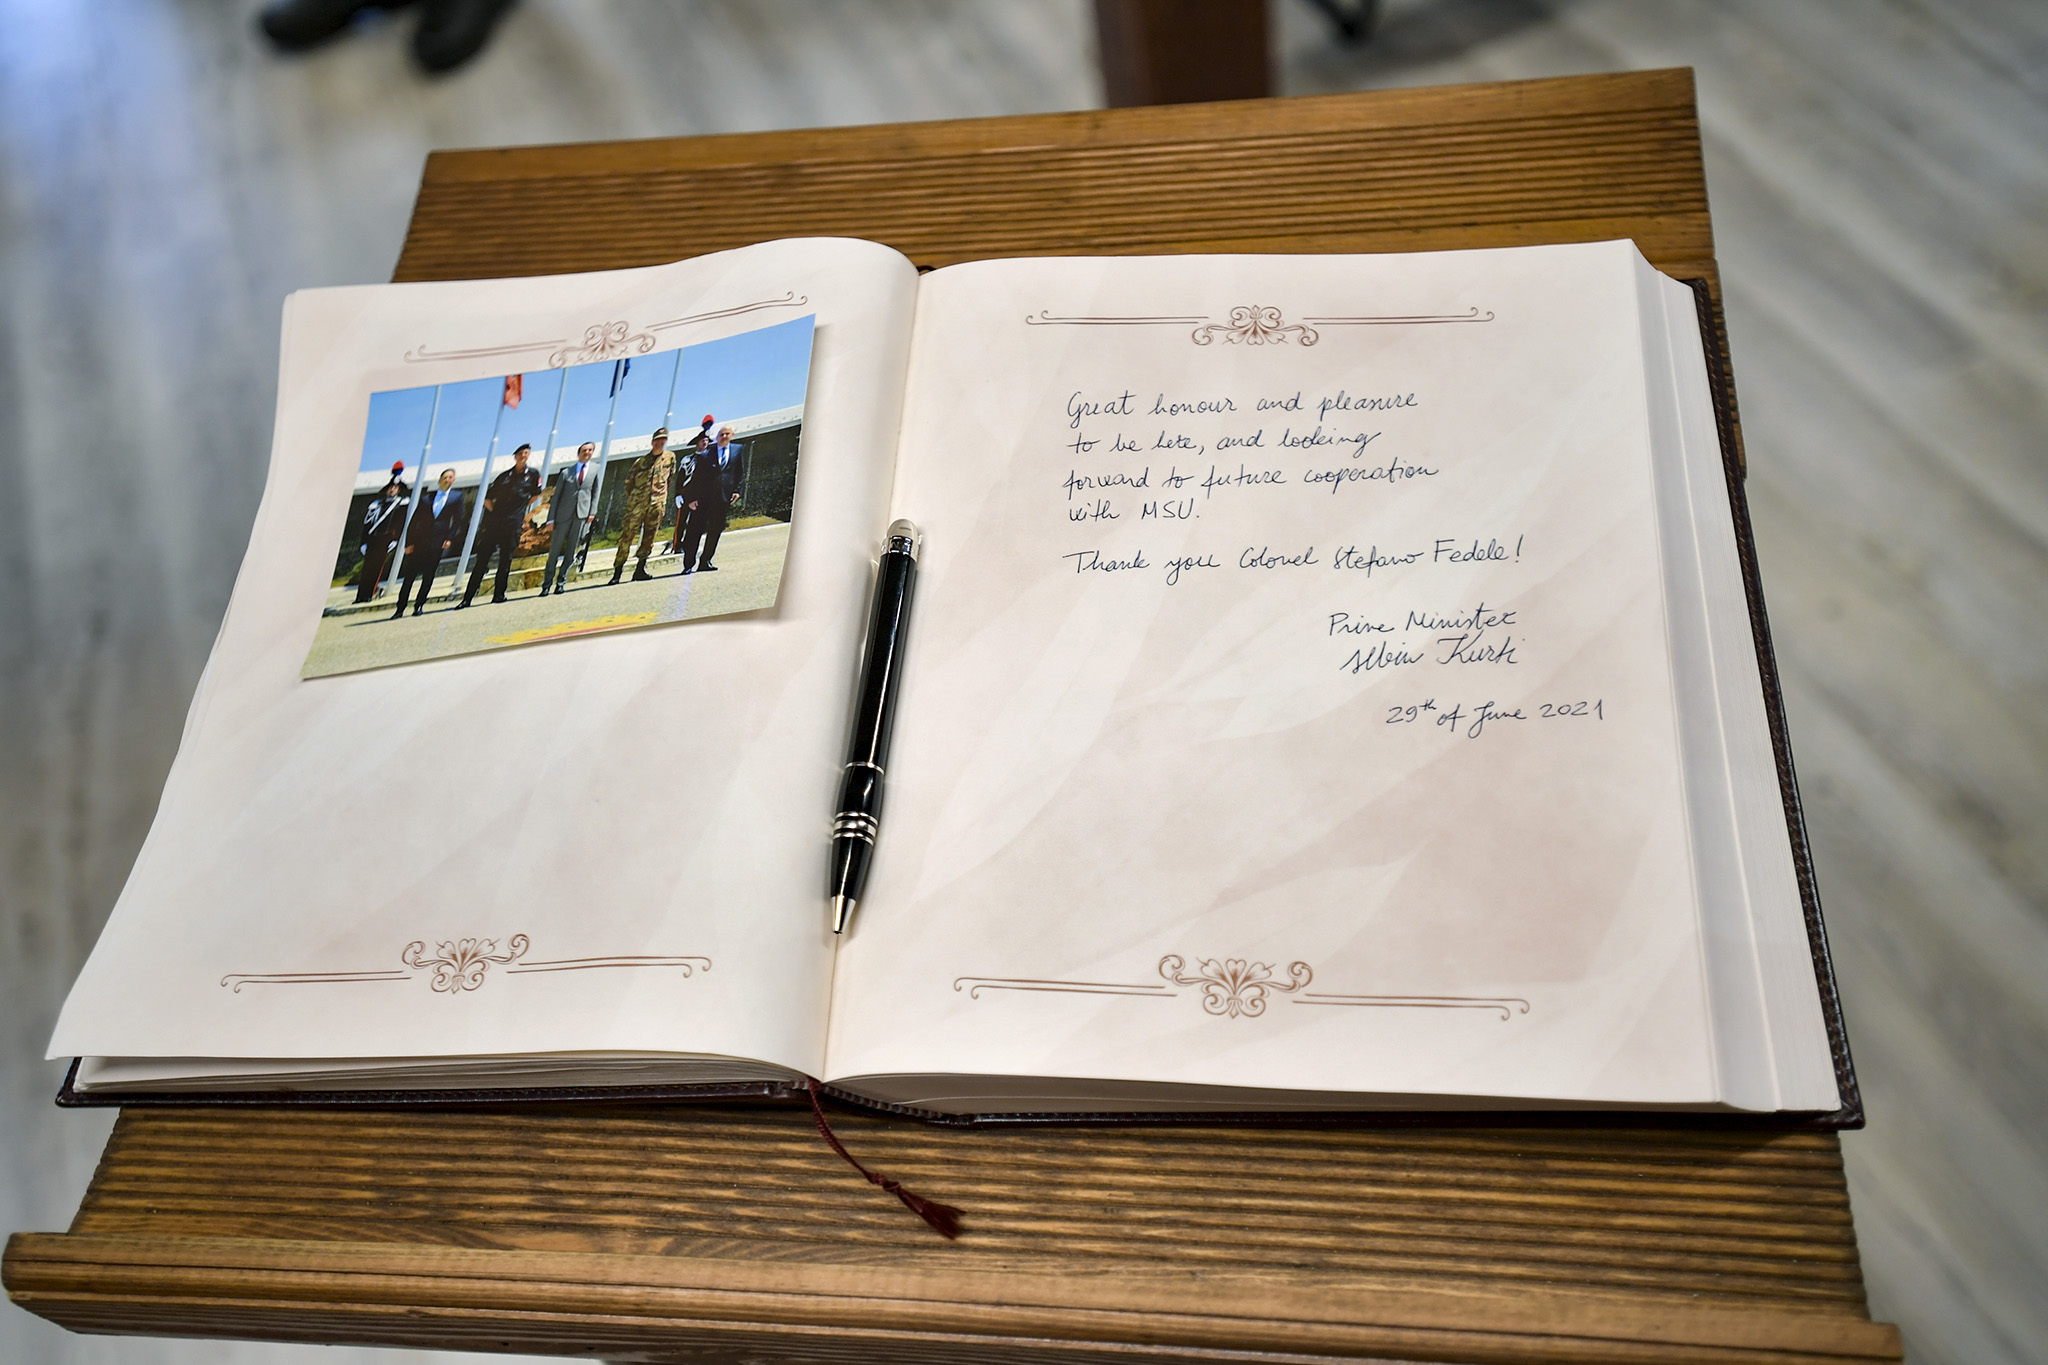 Great honour and pleasure
to be here, and looking
forward to future cooperation
with MSU.
Thank you Colonel Stefano Fedele!
Prime Minister
Albin Kurti
29th of June 2021